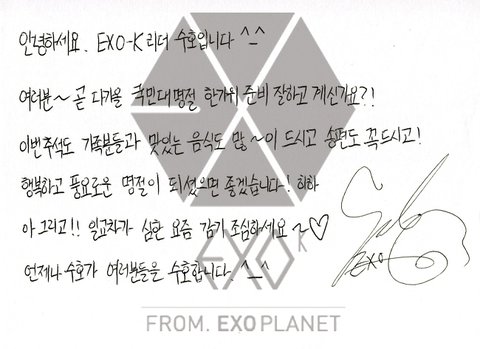 안녕하세요. EXO-K 리더 수호입니다 ^_^
여러분~ 곧 다가올 국민대명절 한가위 준비 잘하고 계신가요?!
이번추석도 가족분들과 맛있는 음식도 많~이 드시고 송편도 꼭드시고!
행복하고 풍요로운 명절이 되셨으면 좋겠습니다! 하하
아 그리고!! 일교차가 심한 요즘 감기 조심하세요~♡
언제나 수호가 여러분들을 수호합니다. ^_^
EXO
EXO K
FROM. EXO PLANET